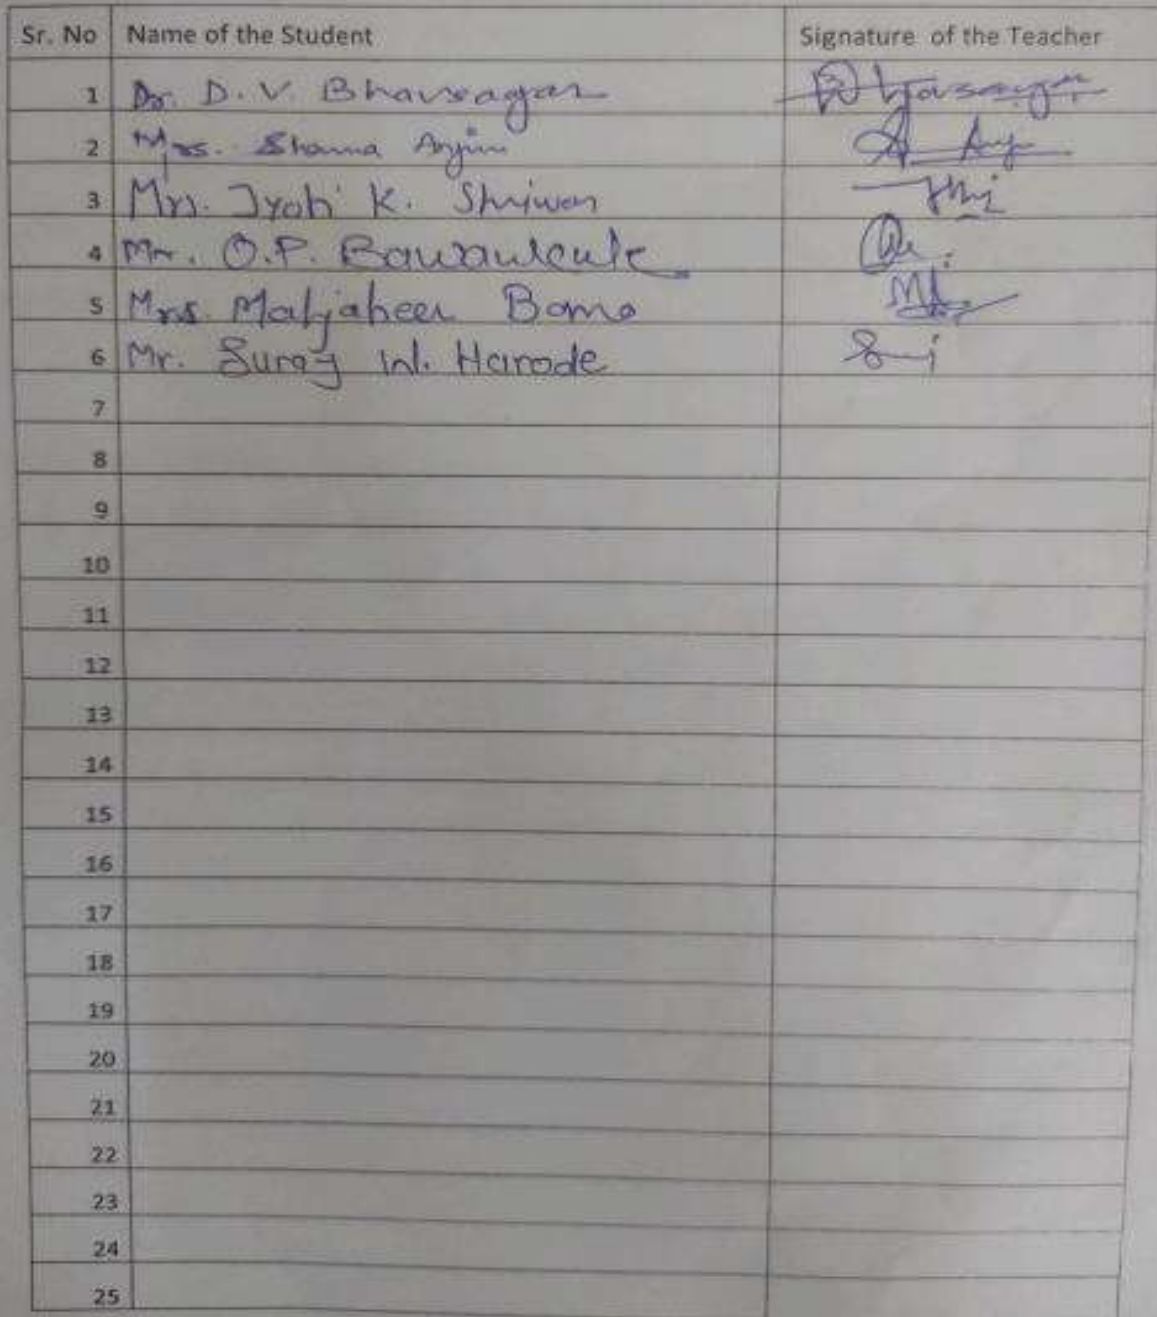 Sr. No Name of the Student Signature of the Teacher
1 Dr. D. V. Bhavsagar
2 Mrs. Shama Anjum
3 Mrs. Jyoti K. Shriwas
4 Mr. O.P. Bawankule
5 Mrs. Mahjabeen Bano
6 Mr. Suraj W. Harode
7
8
9
10
11
12
13
14
15
16
17
18
19
20
21
22
23
24
25